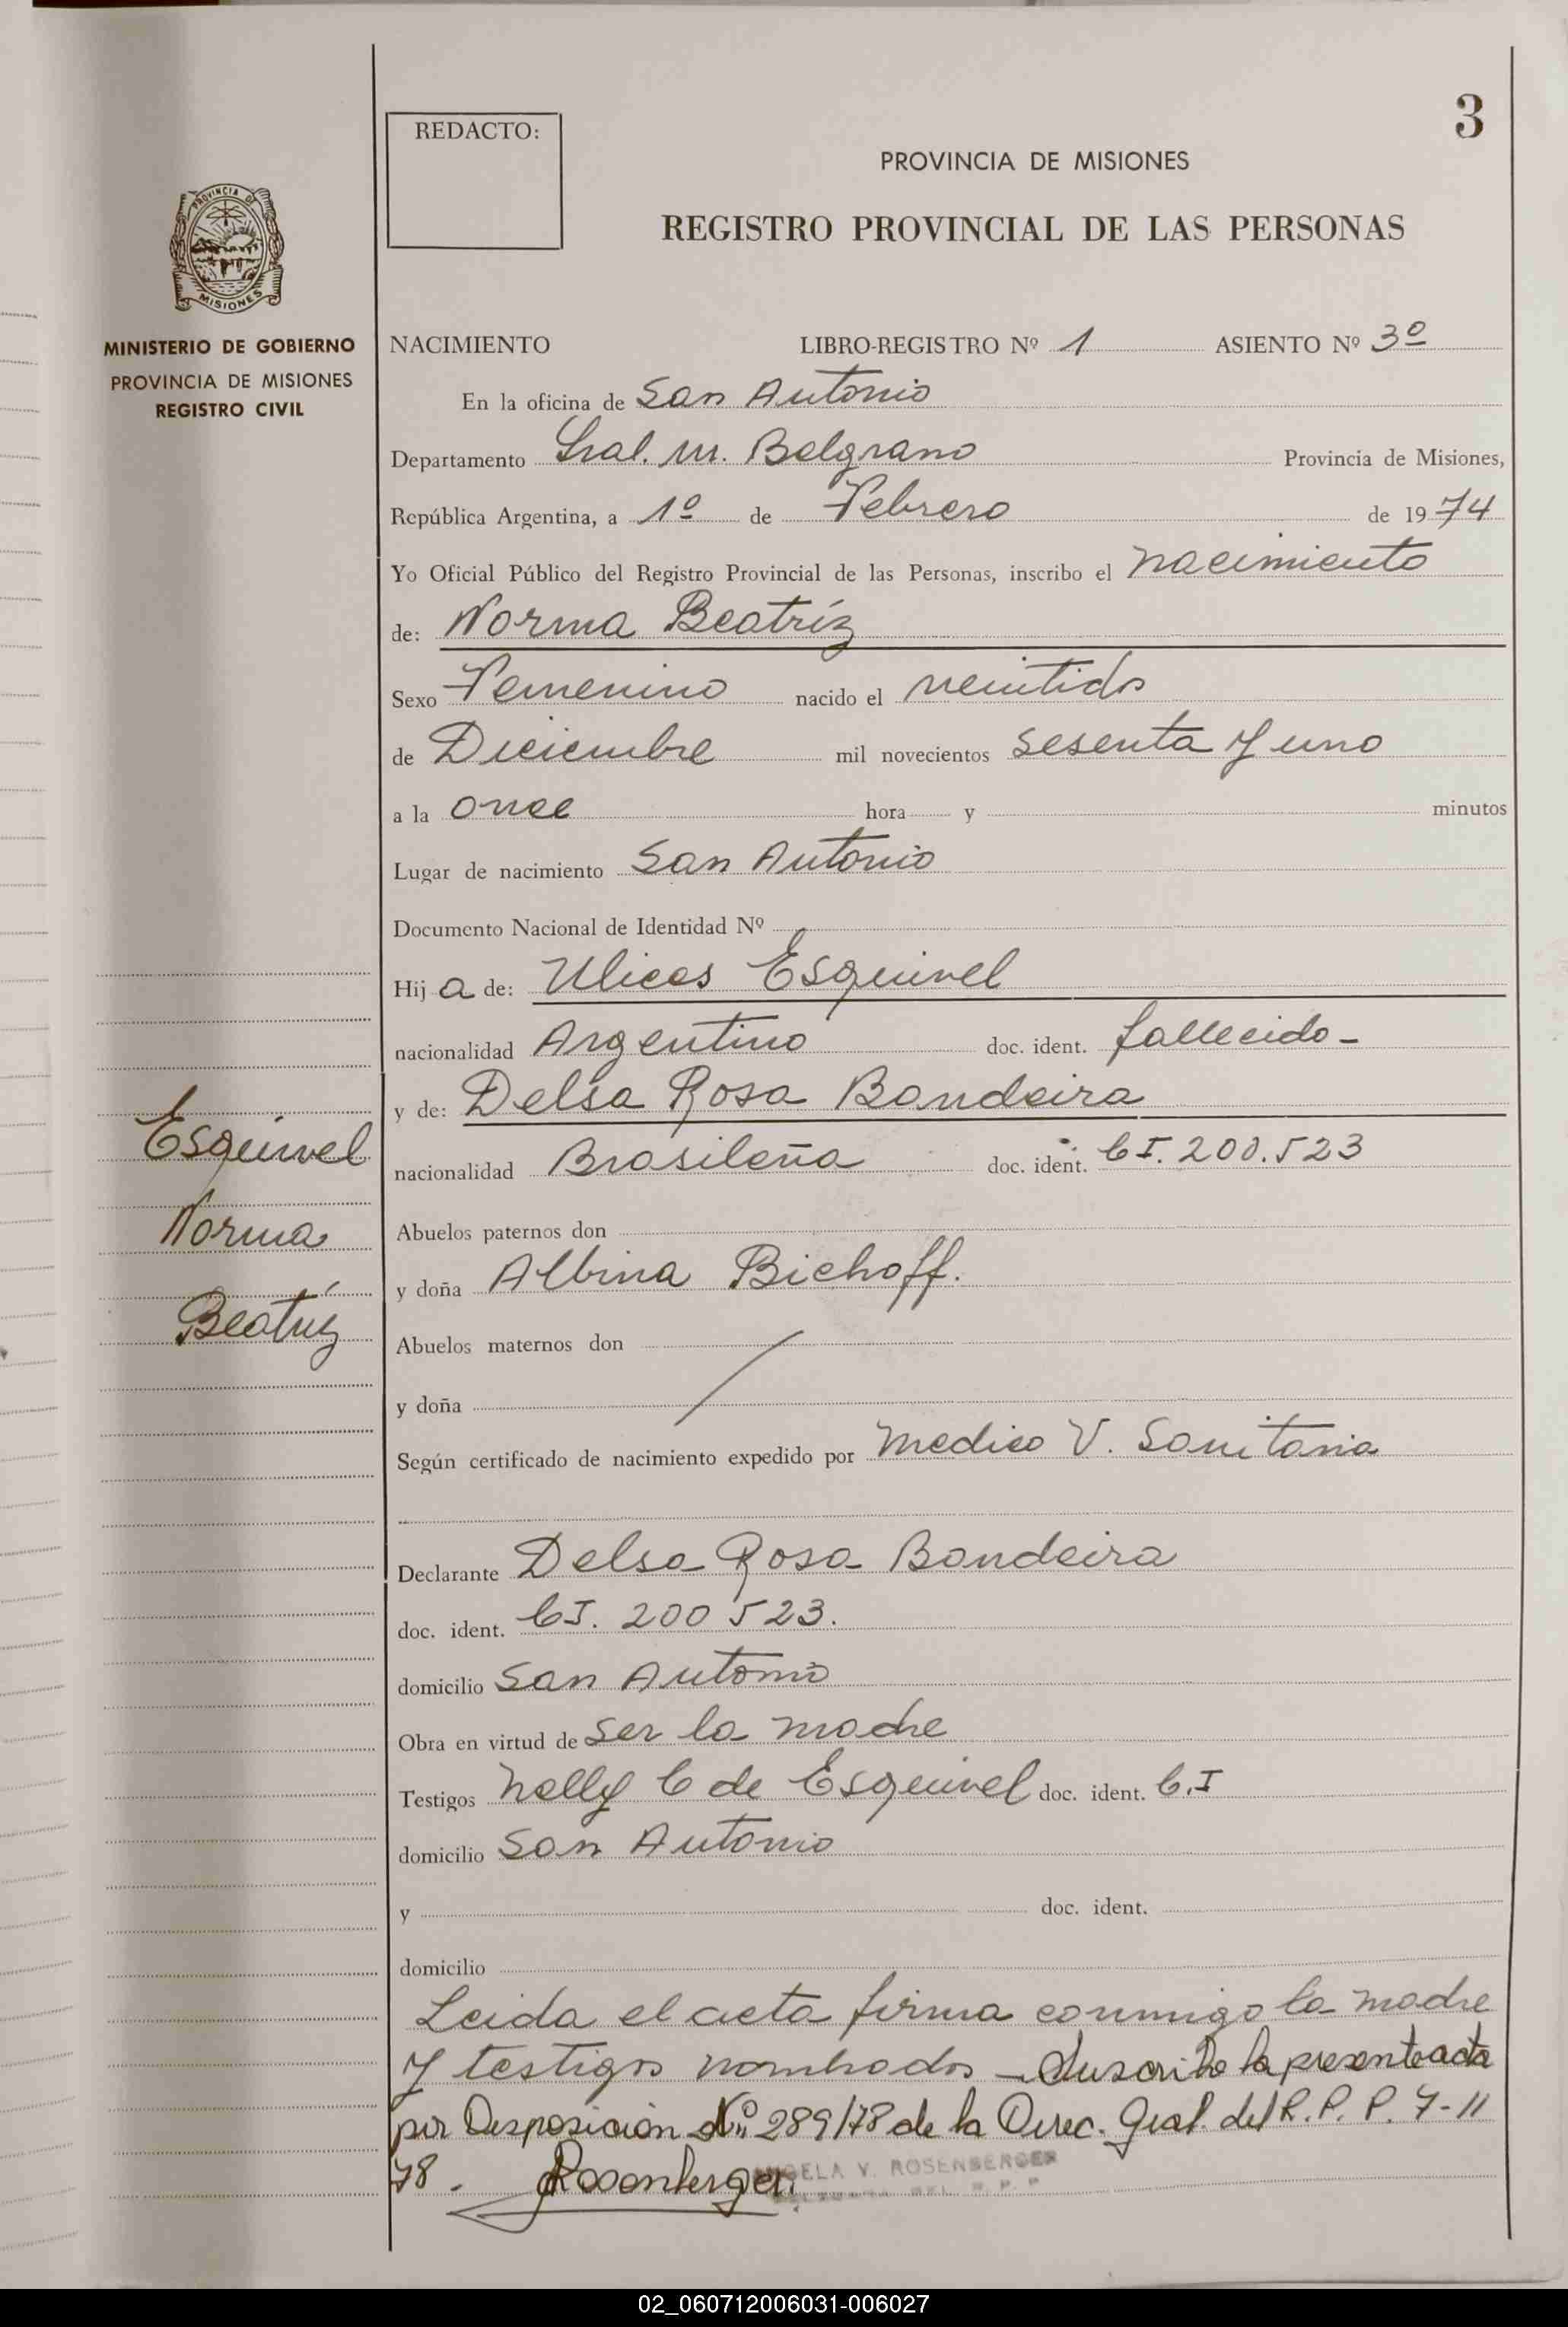 3
REDACTO:
PROVINCIA DE MISIONES
REGISTRO PROVINCIAL DE LAS PERSONAS
PROVINCIA DE
MISIONES
MINISTERIO DE GOBIERNO
PROVINCIA DE MISIONES
REGISTRO CIVIL
NACIMIENTO LIBRO-REGISTRO Nº 1 ASIENTO Nº 3º
En la oficina de San Antonio
Departamento Gral. M. Belgrano Provincia de Misiones,
República Argentina, a 1º de Febrero de 1974
Yo Oficial Público del Registro Provincial de las Personas, inscribo el nacimiento
de: Norma Beatríz
Sexo Femenino nacido el veintidos
de Diciembre mil novecientos sesenta y uno
a la once hora y minutos
Lugar de nacimiento San Antonio
Documento Nacional de Identidad Nº
Hij a de: Ulices Esquivel
nacionalidad Argentino doc. ident. fallecido-
y de: Delsa Rosa Bandeira
nacionalidad Brasileña doc. ident. CI. 200.523
Abuelos paternos don
y doña Albina Bichoff.
Abuelos maternos don
y doña
Según certificado de nacimiento expedido por medico V. Sanitaria
Declarante Delsa Rosa Bandeira
doc. ident. CI. 200523.
domicilio San Antonio
Obra en virtud de ser la madre
Testigos Nelly C de Esquivel doc. ident. C.I
domicilio San Antonio
y doc. ident.
domicilio
Leida el acta firma conmigo la madre
y testigos nombrados - Suscribo la presente acta
por Disposición Nº 289/78 de la Direc. Gral. del R. P. P. 7-11
78. Rosenberger
ANGELA V. ROSENBERGER
Esquivel
Norma
Beatríz
02_060712006031-006027